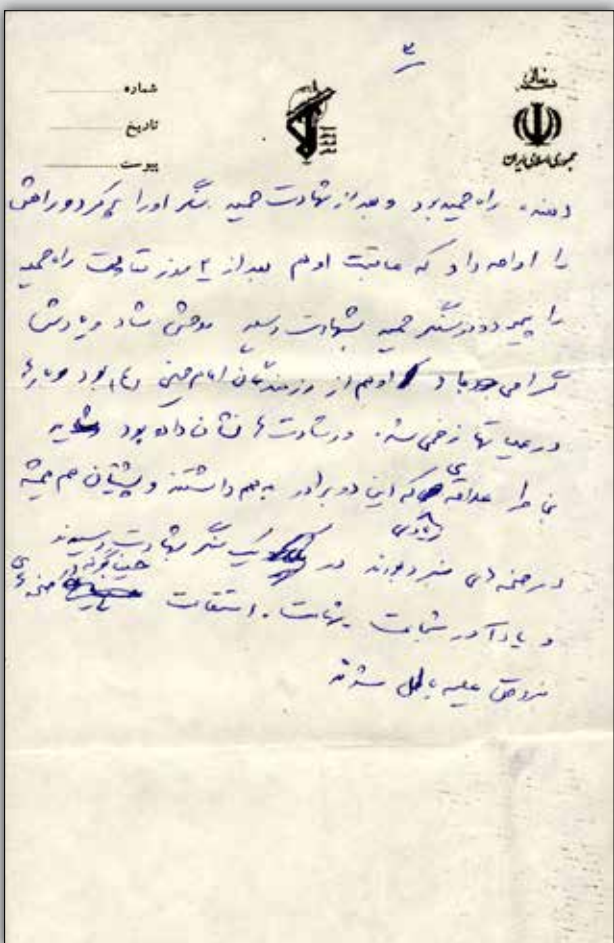 ۳
بسمه تعالی
جمهوری اسلامی ایران
شماره
تاریخ
پیوست
راه حمید بود و بعد از شهادت حمید سنگر او را پر کرد و راهش
را ادامه داد که عاقبت او هم بعد از ۲ روز مقاومت راه حمید
را پیمود و در سنگر حمید بشهادت رسید روحش شاد و یادش
گرامی باد او هم از رزمندگان امام خمینی بود و بارها
در عملیاتها زخمی شده و رشادت ها نشان داده بود
بخاطر علاقه‌یی زیادی که این دو برادر به هم داشتند و پشتیبان هم همیشه
در صحنه های نبرد بودند در یک سنگر بشهادت رسیدند
و یادآور شجاعت شهامت استقامت حسین گونه در صحنه های
نبرد حق علیه باطل شدند